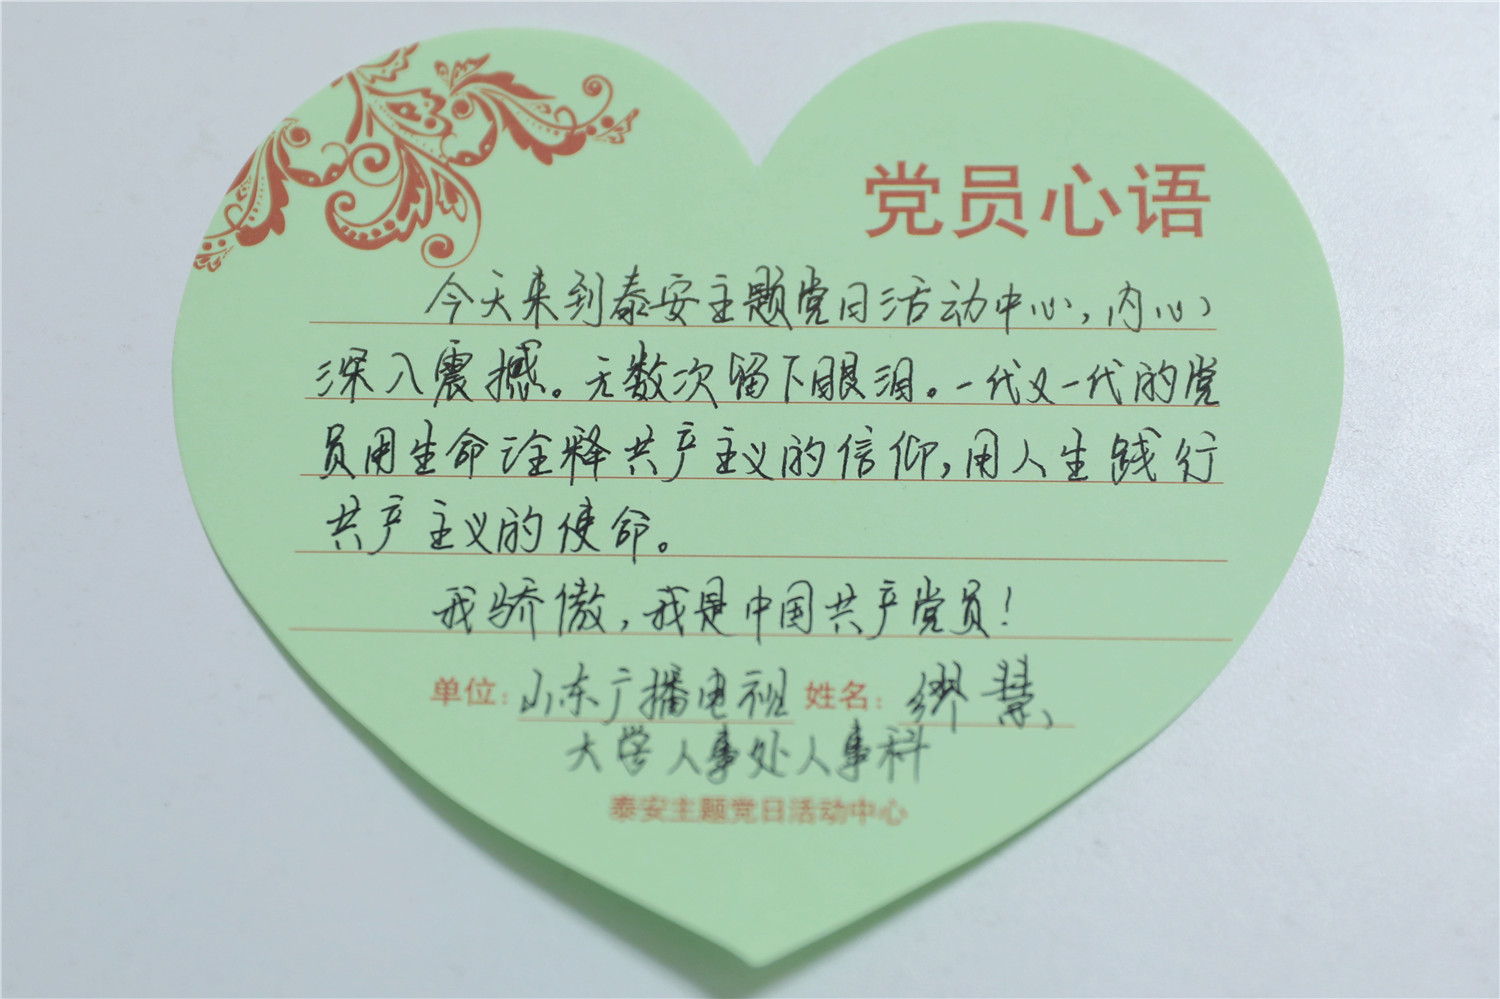 党员心语
今天来到泰安主题党日活动中心，内心
深入震撼。无数次留下眼泪。一代又一代的党
员用生命诠释共产主义的信仰，用人生践行
共产主义的使命。
我骄傲，我是中国共产党员！
单位：山东广播电视 姓名：缪慧
大学人事处人事科
泰安主题党日活动中心